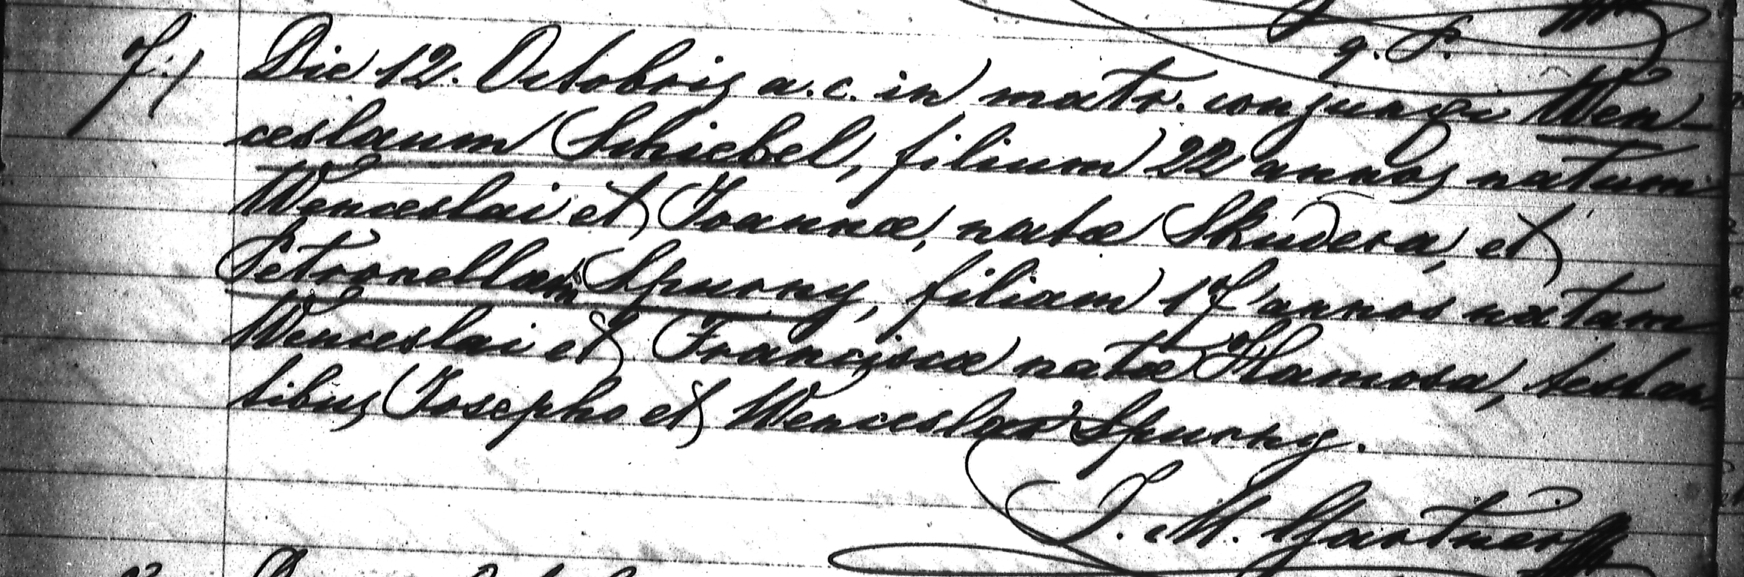 g. P.
7.) Die 12. Octobris a.c. in matr. conjunxi Wen-
ceslaum Schiebel, filium 22 annos natum
Wenceslai et Joannæ, natæ Skudera, et
Petronellam Spurny, filiam 17 annos natam
Wenceslai et Franciscæ natæ Hlamosa, testan-
tibus Josepho et Wenceslao Spurny.
J. M. Gartner